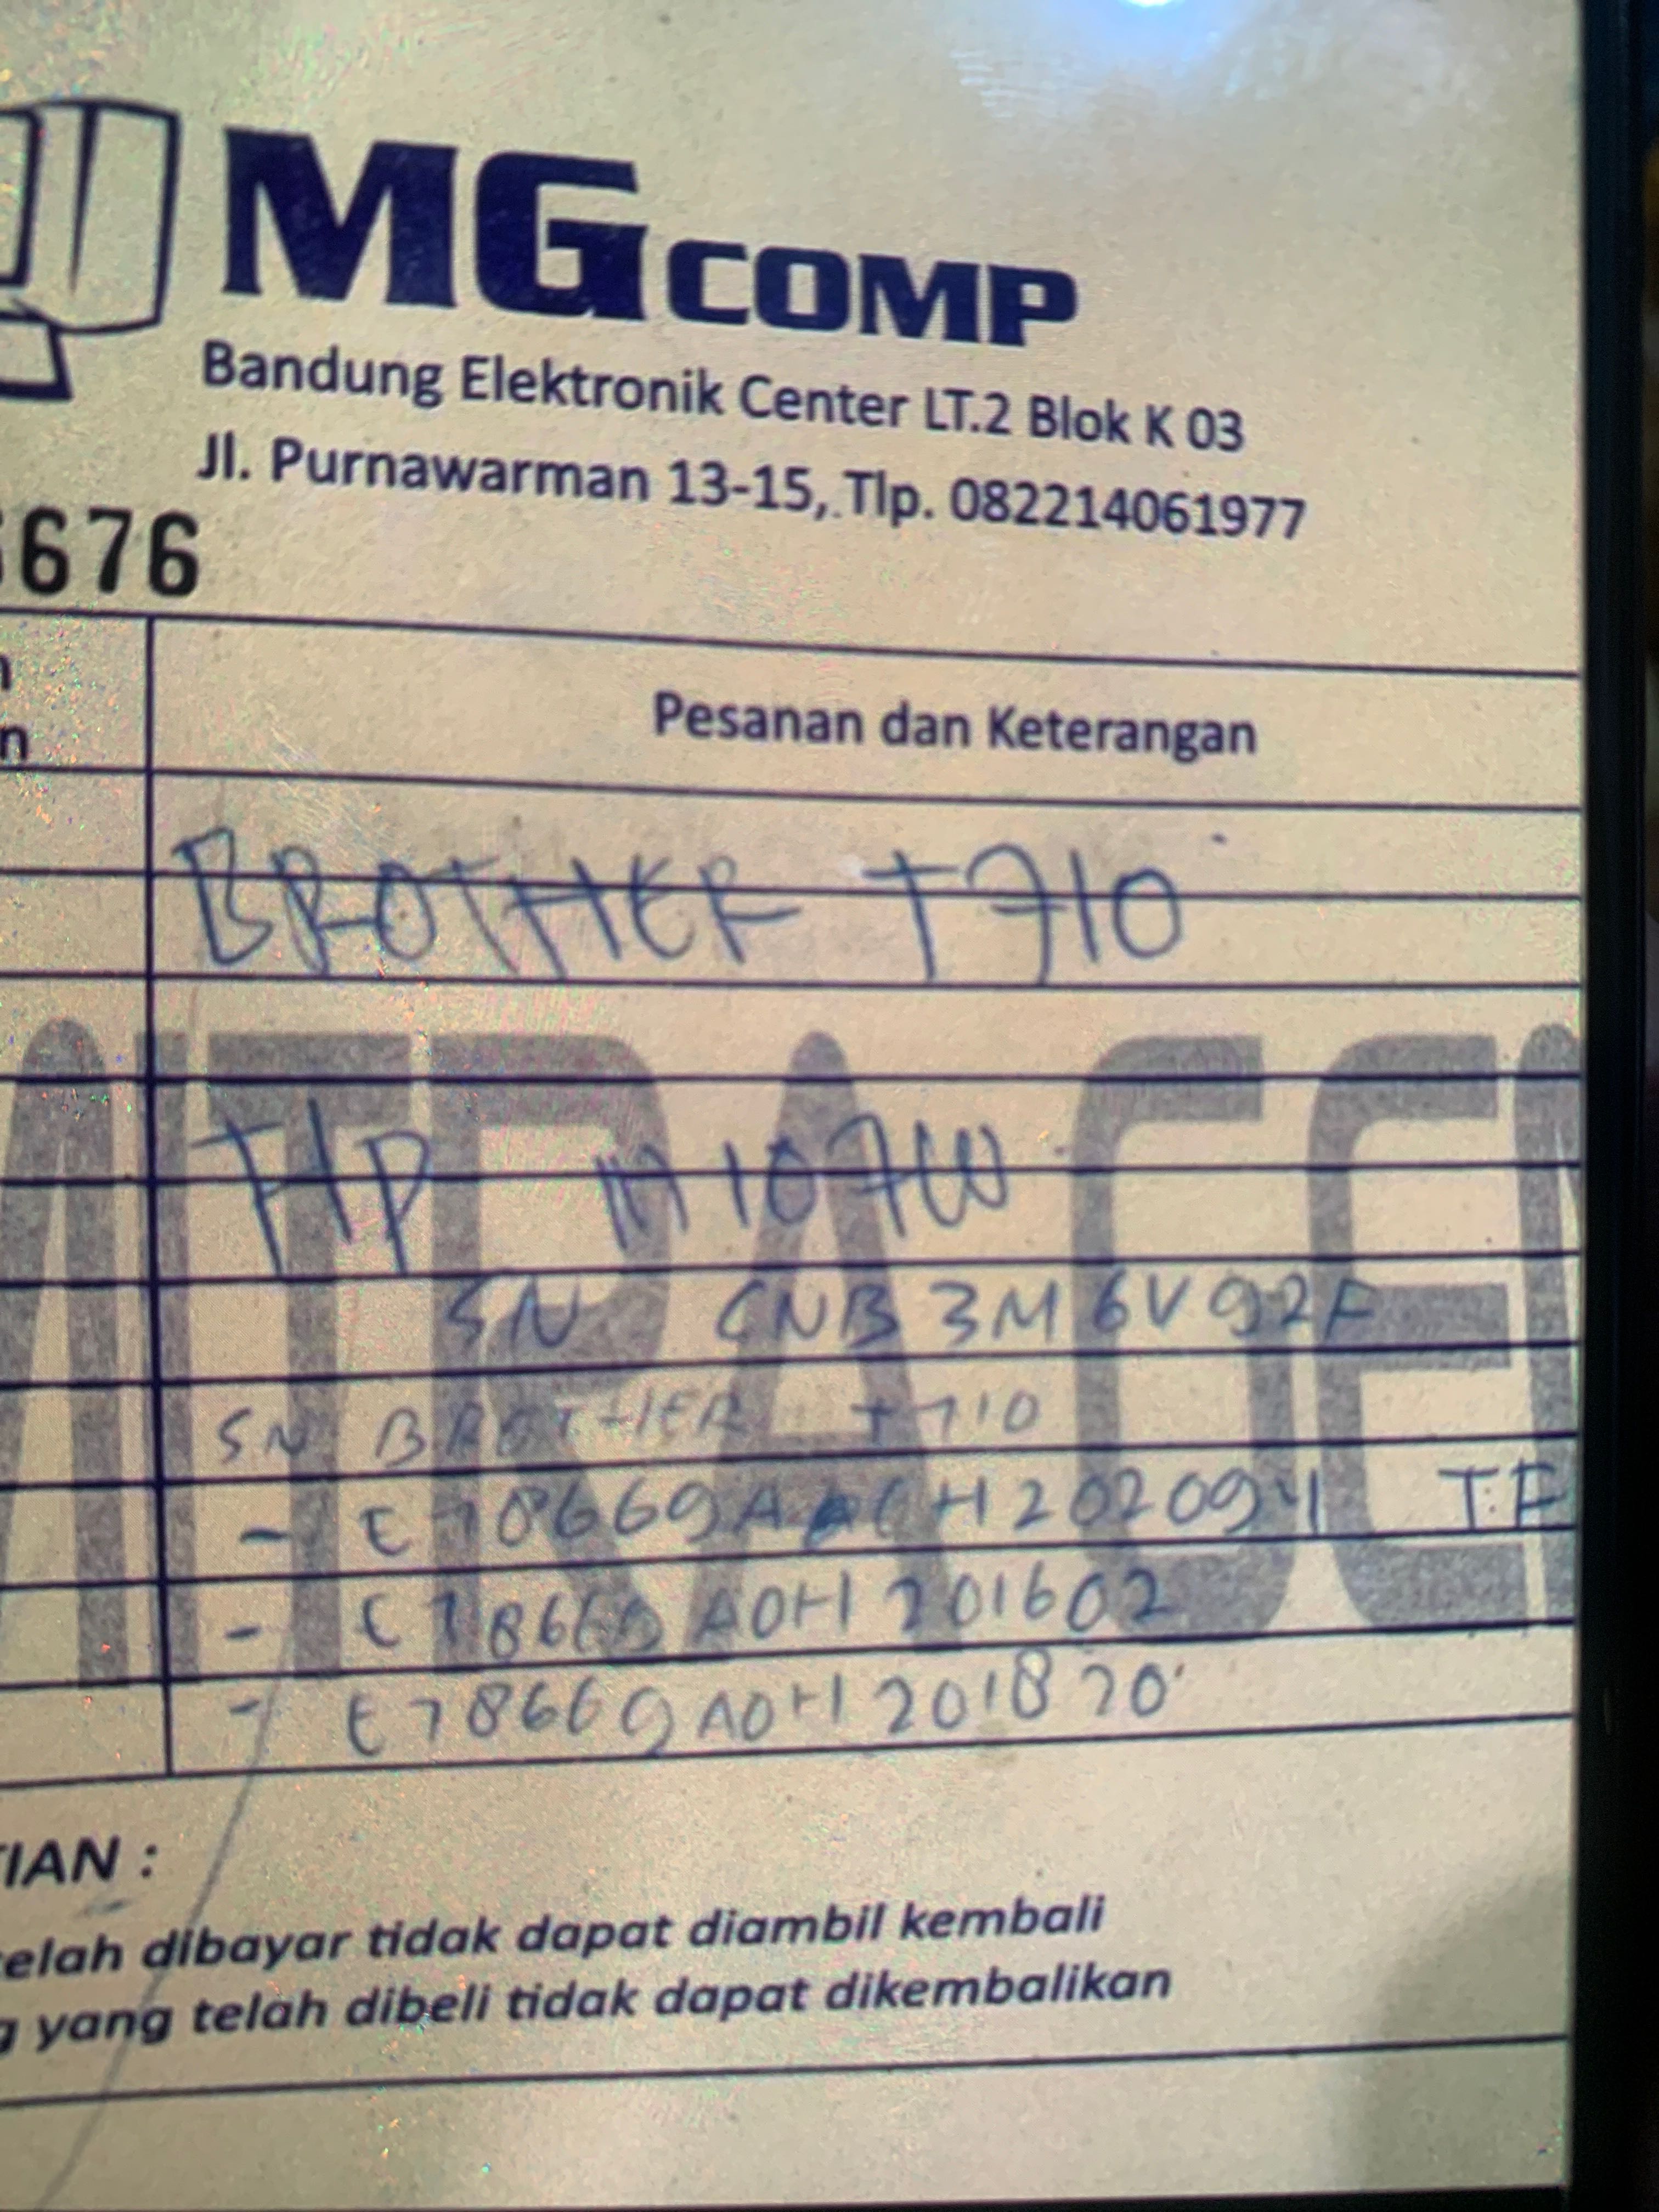 MGCOMP
Bandung Elektronik Center LT.2 Blok K 03
Jl. Purnawarman 13-15, Tlp. 082214061977
676
Pesanan dan Keterangan
BROTHER T710
HP M107W
SN CNB3M6V92F
SN BROTHER T710
- E78669A0H202091 TF
- E78669A0H201602
- E78669A0H201820
MITRA CE
TIAN :
telah dibayar tidak dapat diambil kembali
g yang telah dibeli tidak dapat dikembalikan